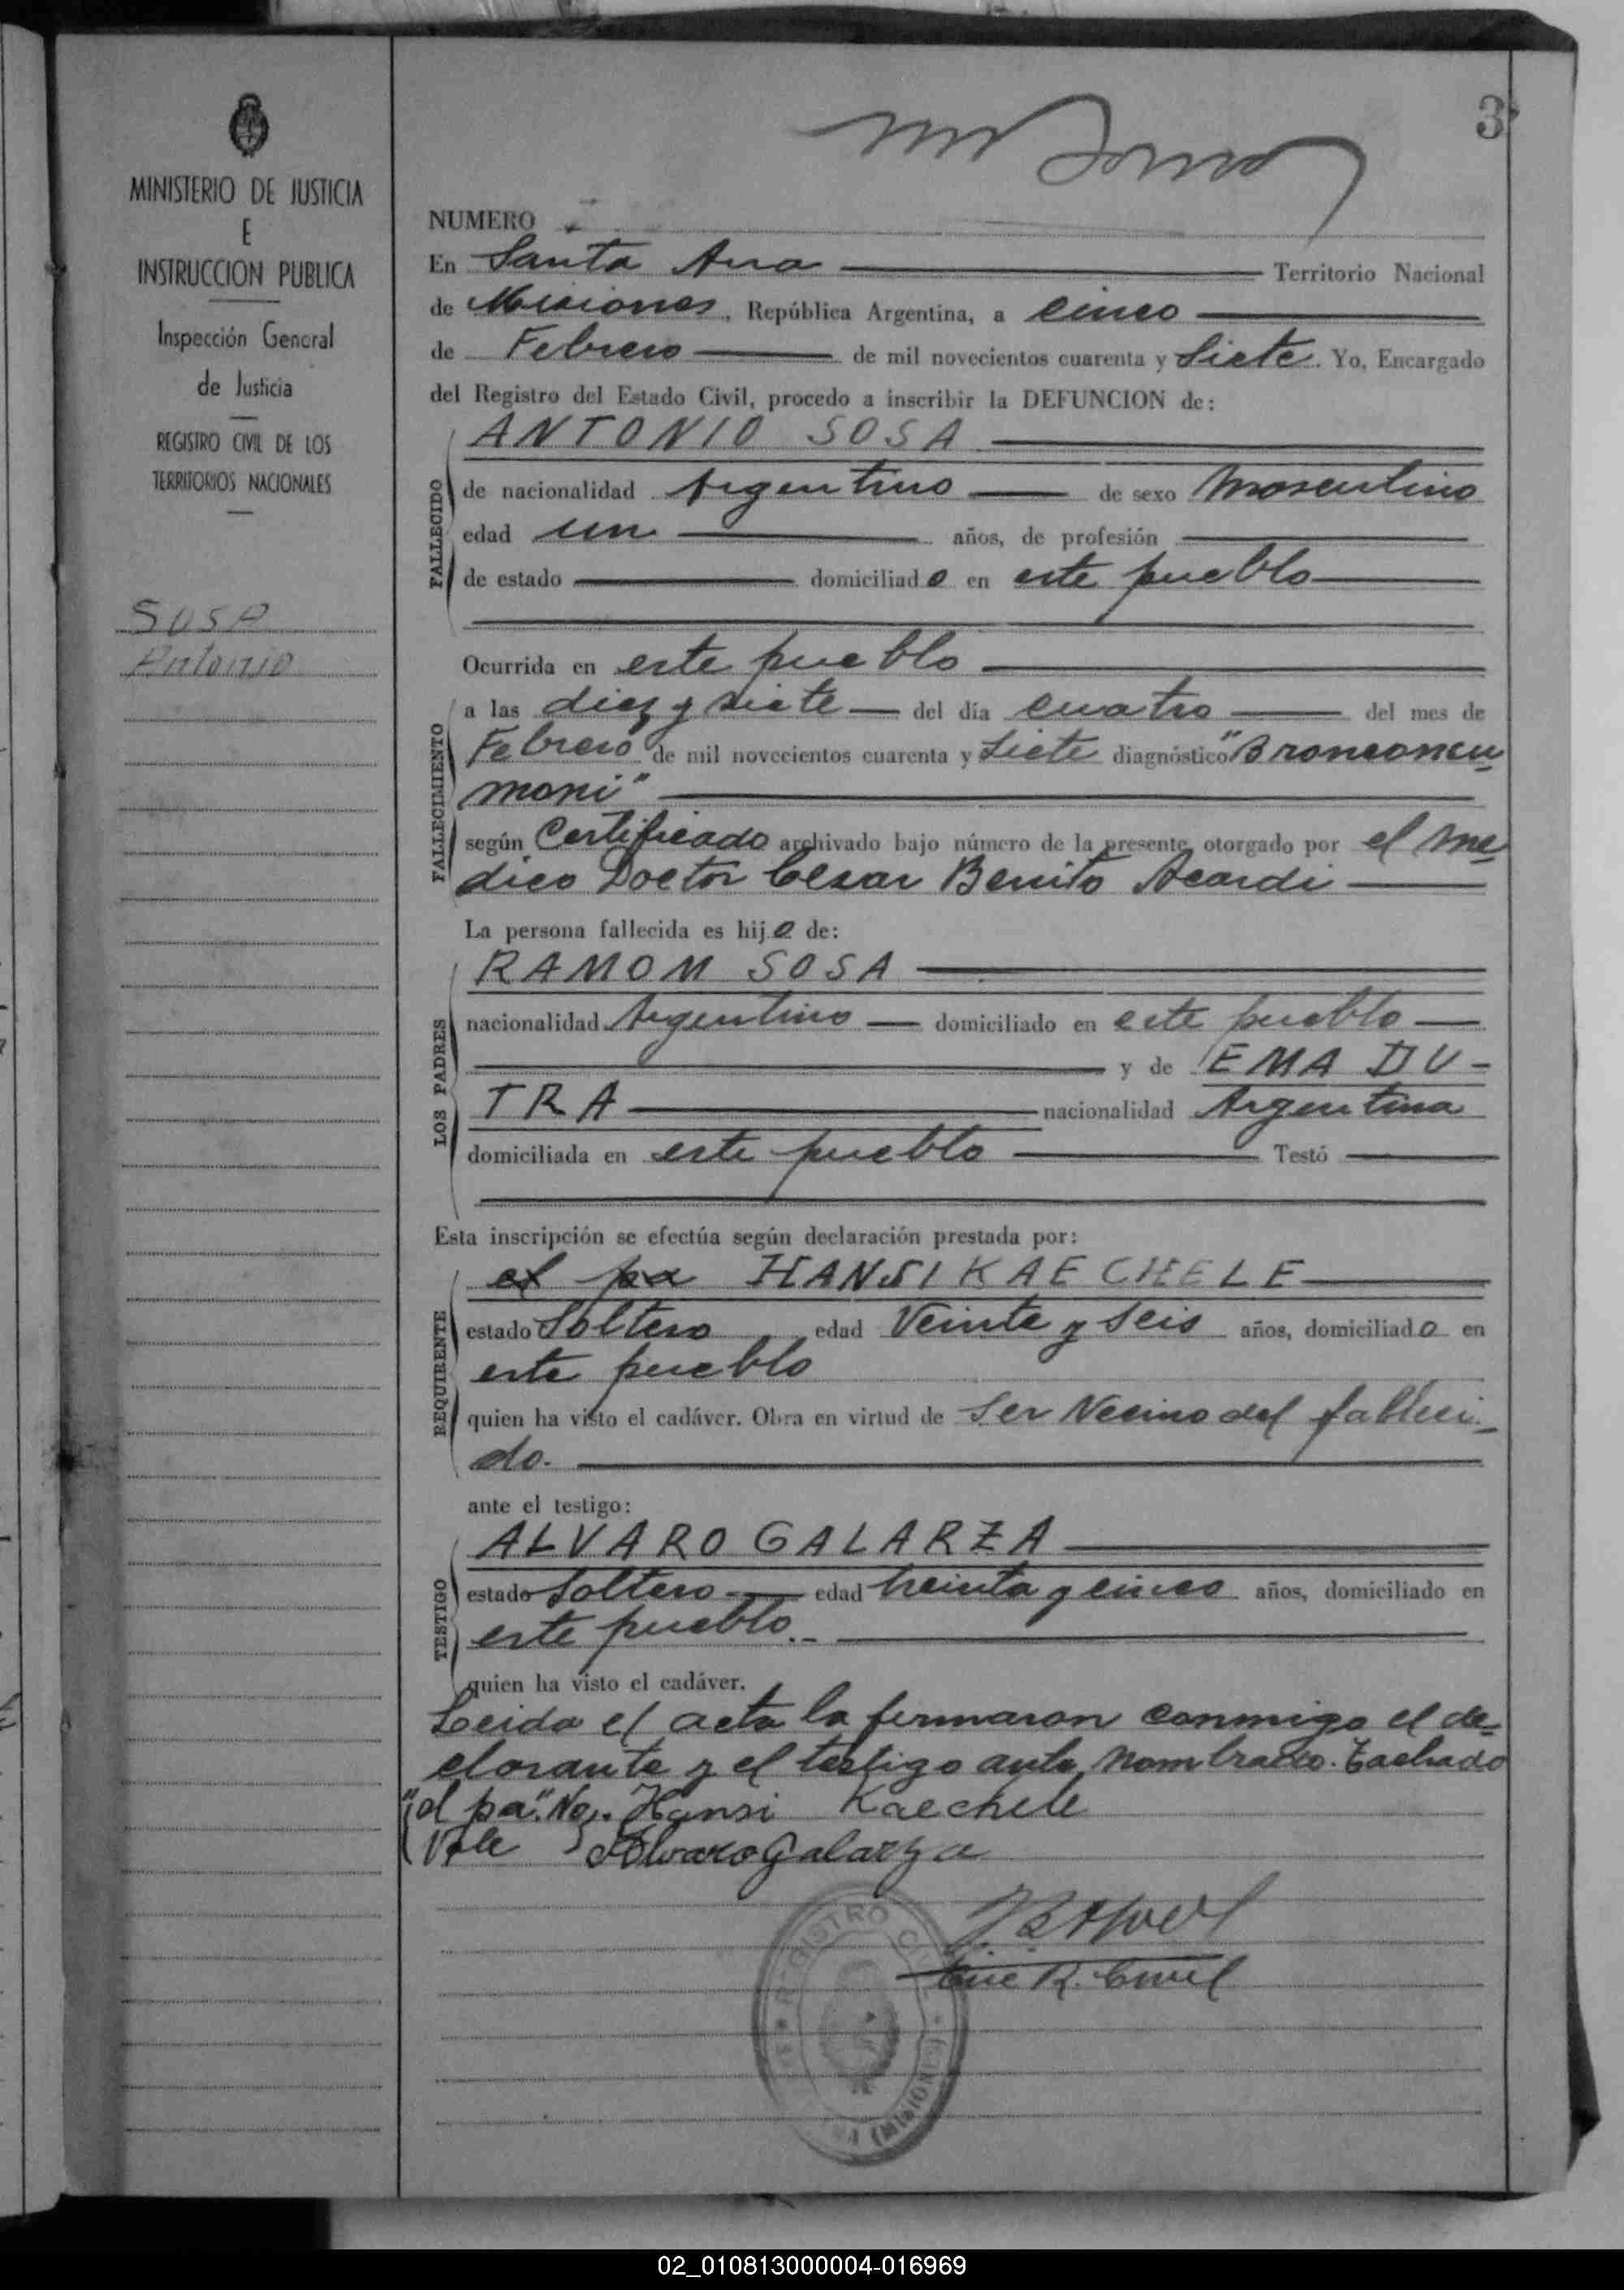 3
MINISTERIO DE JUSTICIA
E
INSTRUCCION PUBLICA
Inspección General
de Justicia
REGISTRO CIVIL DE LOS
TERRITORIOS NACIONALES
SOSA
Antonio
NUMERO
En Santa Ana Territorio Nacional
de Misiones, República Argentina, a cinco
de Febrero de mil novecientos cuarenta y Siete. Yo, Encargado
del Registro del Estado Civil, procedo a inscribir la DEFUNCION de:
FALLECIDO
ANTONIO SOSA
de nacionalidad Argentino de sexo Masculino
edad un años, de profesión
de estado domiciliado en este pueblo
Ocurrida en este pueblo
FALLECIMIENTO
a las diez y siete del día cuatro del mes de
Febrero de mil novecientos cuarenta y Siete diagnóstico "Bronconeu-
moni"
según Certificado archivado bajo número de la presente, otorgado por el mé-
dico Doctor Cesar Benito Acardi
La persona fallecida es hijo de:
LOS PADRES
RAMON SOSA
nacionalidad Argentino domiciliado en este pueblo
y de EMA DU-
TRA nacionalidad Argentina
domiciliada en este pueblo Testó
Esta inscripción se efectúa según declaración prestada por:
REQUIRENTE
el pa HANSI KAECHELE
estado Soltero edad Veinte y Seis años, domiciliado en
este pueblo
quien ha visto el cadáver. Obra en virtud de Ser Vecino del falleci-
do.
ante el testigo:
TESTIGO
ALVARO GALARZA
estado Soltero edad treinta y cinco años, domiciliado en
este pueblo.-
quien ha visto el cadáver.
Leida el acta la firmaron conmigo el de-
clarante y el testigo ante nombrado. Tachado
"el pa". No. Hansi Kaechele
Vale Alvaro Galarza
Enc R. Civil
REGISTRO CIVIL
(MISIONES)
02_010813000004-016969